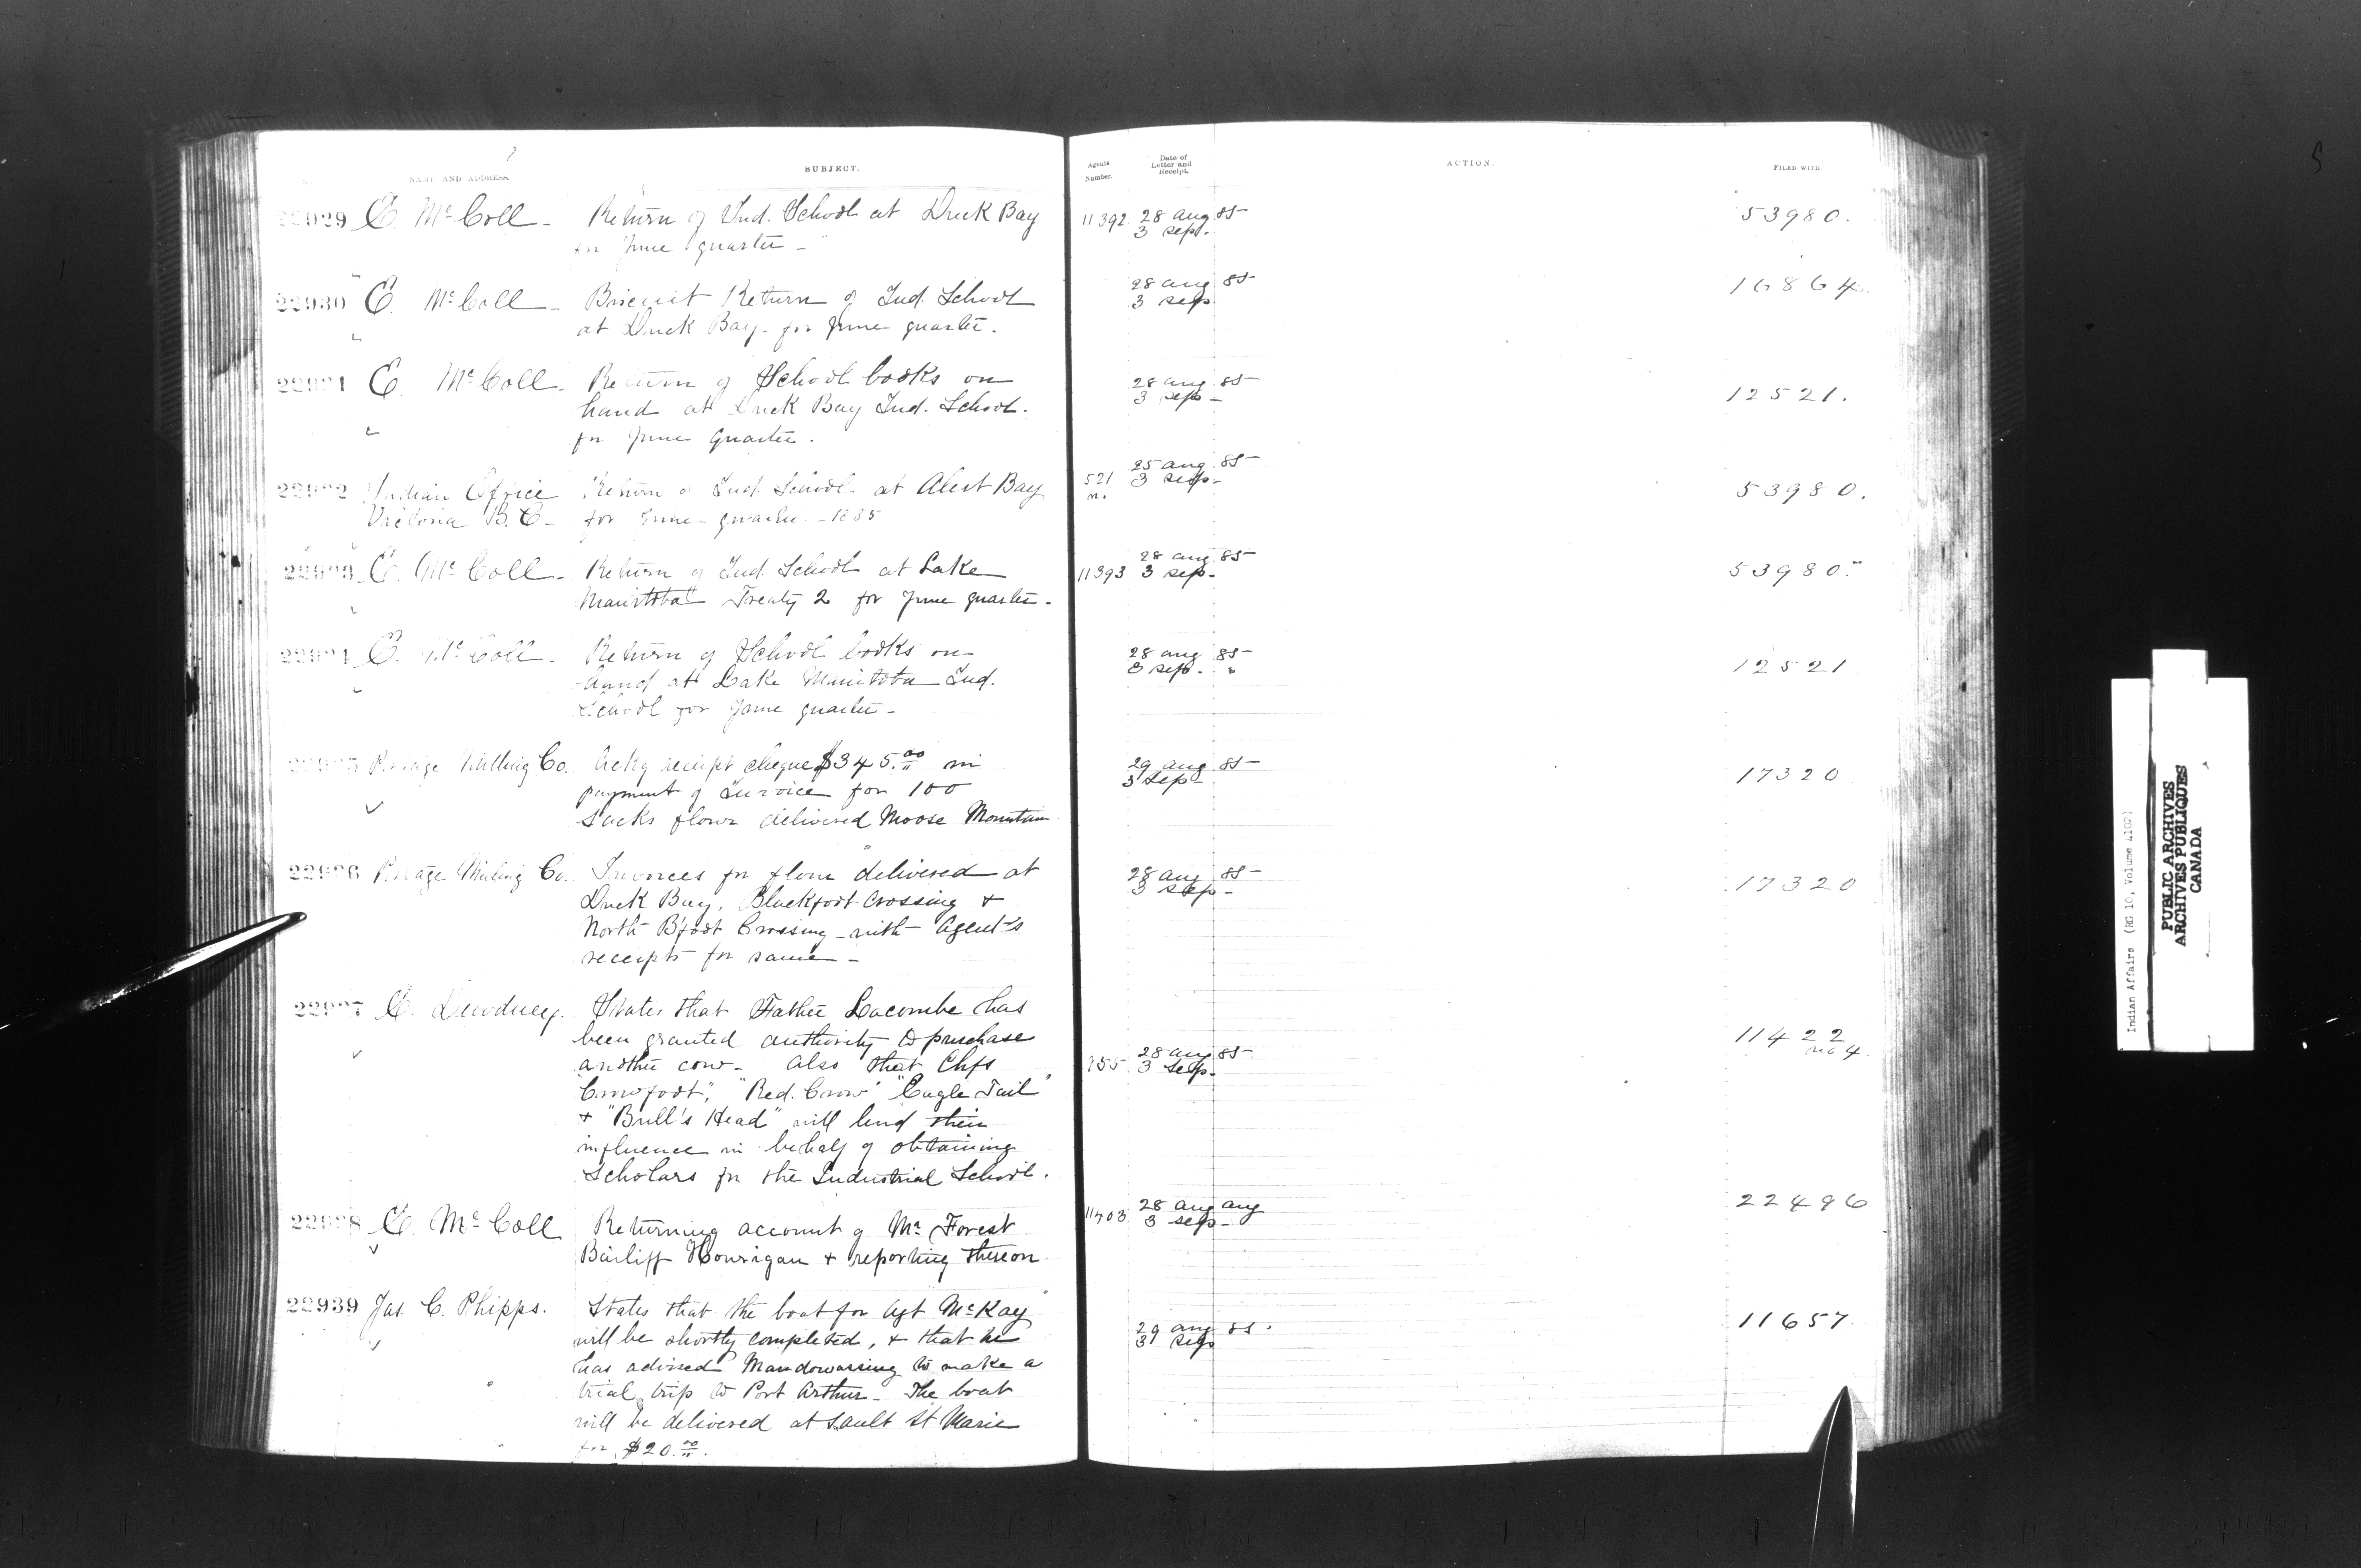 NAME AND ADDRESS.
SUBJECT.
Agents Number.
Date of Letter and Receipt.
ACTION.
FILED WITH
22929 E. McColl - Return of Ind. School at Duck Bay 11392 28 aug 85 53980.
for June quarter - 3 sep.
22930 E. McColl - Biscuit Return of Ind. School 28 aug 85 16864.
at Duck Bay - for June quarter. 3 sep
22931 E. McColl - Return of School books on 28 aug 85 12521.
hand at Duck Bay Ind. School. 3 sep -
for June Quarter.
22932 Indian Office Return of Ind. School at Alert Bay 521 25 aug 85 53980.
Victoria B.C - for June quarter - 1885 3 sep -
22933 E. McColl - Return of Ind. School at Lake 11393 28 aug 85 53980.
Manitoba Treaty 2 for June quarter. 3 sep -
22934 E. McColl. Return of School books on 28 aug 85 12521
hand at Lake Manitoba Ind. 3 sep. "
School for June quarter -
22935 Portage Milling Co. Ackg receipt cheque $345.00 in 29 aug 85 17320
payment of Invoice for 100 3 Sep
sacks flour delivered Moose Mountain
22936 Portage Milling Co. Invoices for flour delivered at 28 aug 85 17320
Duck Bay, Blackfoot Crossing + 3 sep -
North B'foot Crossing - with Agent's
receipts for same -
22937 E. Dewdney. States that Father Lacombe has
been granted authority to purchase 11422
another cow - also that Chfs 955 28 aug 85 no 4.
"Crowfoot", "Red. Crow" "Eagle Tail" 3 Sep.
+ "Bull's Head" will lend their
influence in behalf of obtaining
Scholars for the Industrial School.
22938 E. McColl Returning account of Mr Forest 11403 28 aug aug 22496
Bailiff Hourigan + reporting thereon 3 sep -
22939 Jas. C. Phipps. States that the boat for Agt McKay 11657
will be shortly completed, + that he 29 aug 85.
has advised Mandowassing to make a 3 sep
trial trip to Port Arthur - The boat
will be delivered at Sault St Marie
for $20.00.
Indian Affairs (RG 10, Volume 4102)
PUBLIC ARCHIVES
ARCHIVES PUBLIQUES
CANADA